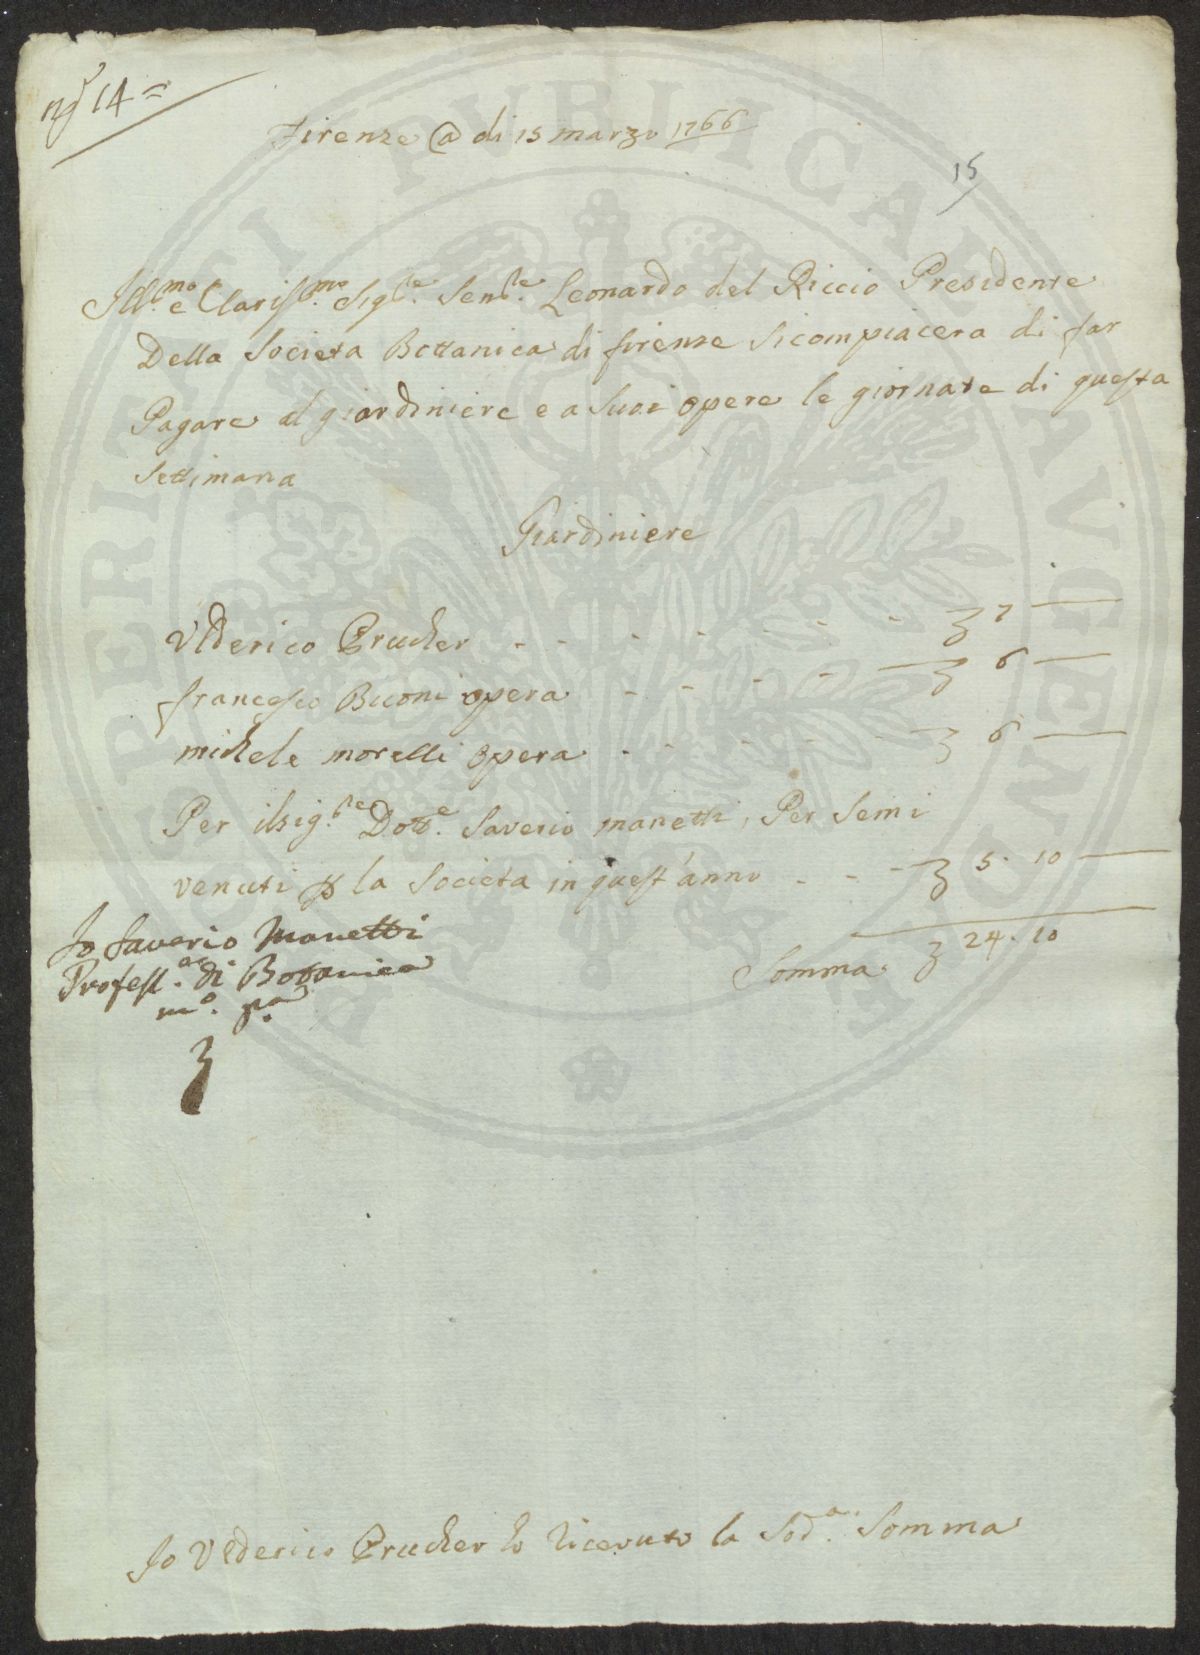 nº 14 =
Firenze @ di 15 marzo 1766
15
Ill.mo e Clariss.mo Sig.re Sen.re Leonardo del Riccio Presidente
Della Societa Bottanica di firenze Sicompiacera di far
Pagare al giardiniere e a Suoi opere le giornate di questa
Settimana
Giardiniere
Vlderico Prucher - - - - - - - 7 —
francesco Buoni opera - - - - — 6 —
michele morelli opera - - - - - 6 —
Per ilsig.re Dott.e Saverio manetti, Per Semi
venuti p la Società in quest'anno - - - 5. 10 —
Somma 24. 10
Io Saverio Manetti
Profess.or di Botanica
m.o p.a
Io Vlderico Prucher ho ricevuto la Sod.a Somma
PROSPERITATI PUBLICAE AVGENDAE